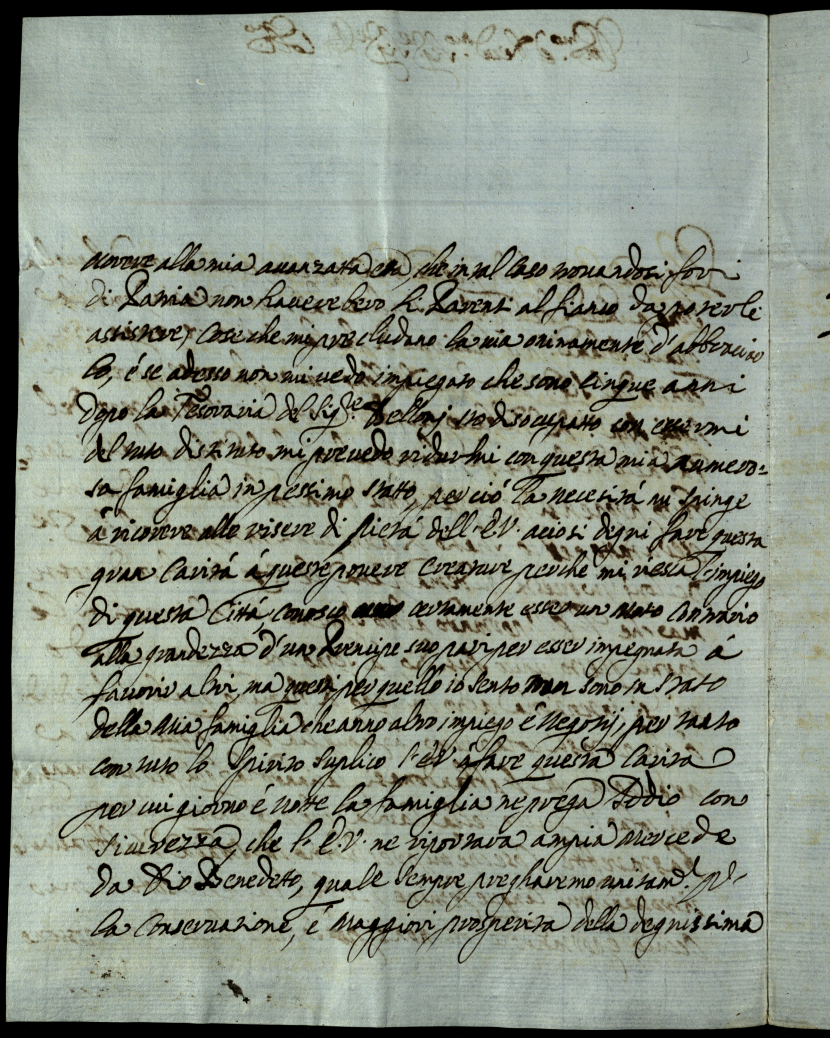 alla mia avanzata età, che in tal caso trovandosi fori
di Patria non haverebero li Parenti al fianco da poterle
assistere, cose che mi precludano la via oninamente d'abbraciar
lo, é se adesso non mi vedo impiegato che sono cinque anni
dopo la Tesoraria del Sig.re Belloni sto disocupato con essermi
del tuto distrutto, mi prevedo ridurmi con questa mia numero=
sa famiglia in pessimo stato, perciò la necesità mi spinge
á ricorere alle visere di pietá dell'E.V. aciò si degni fare questa
gran Carità á queste povere Creature perche mi riesca l'impiego
di questa Città, conosco certamente esser un moto contrario
alla grandezza d'un Prencipe suo pari per esser impegnata á
favorir altri, ma questi per quello io sento non sono in stato
della mia famiglia che anno altro impiego é Negotij, per tanto
con tuto lo Spirito suplico l'E.V. á fare questa Carità
per cui giorno é notte la famiglia ne prega Iddio con
sicurezza, che l'E.V. ne riportarà ampia Mercede
da Dio Benedeto, quale sempre pregharemo unitam.te p.
la Conservatione, é Maggiori prosperità della degnissima